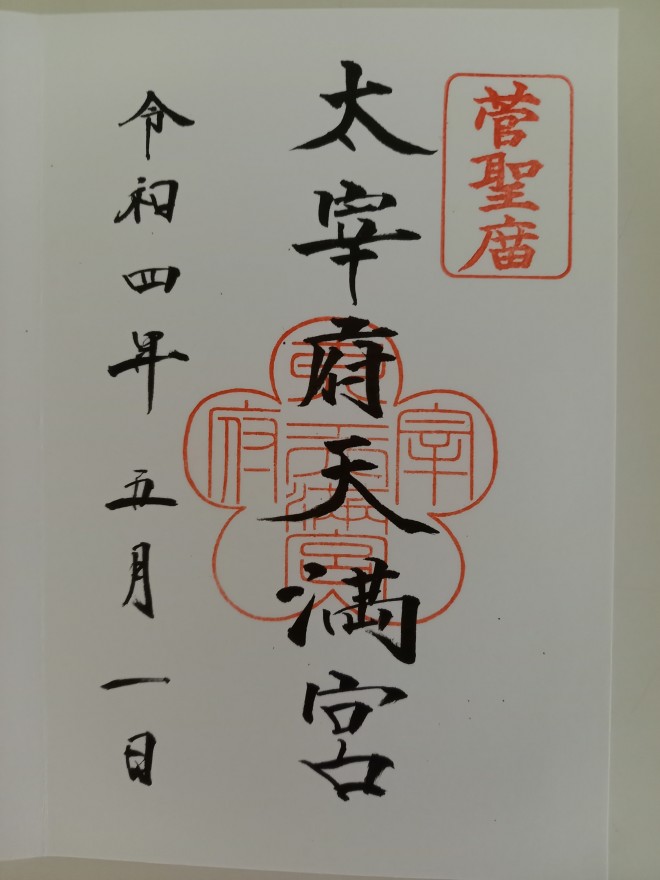 菅聖庿
太宰府天満宮
宰
府
天満宮
令和四年五月一日